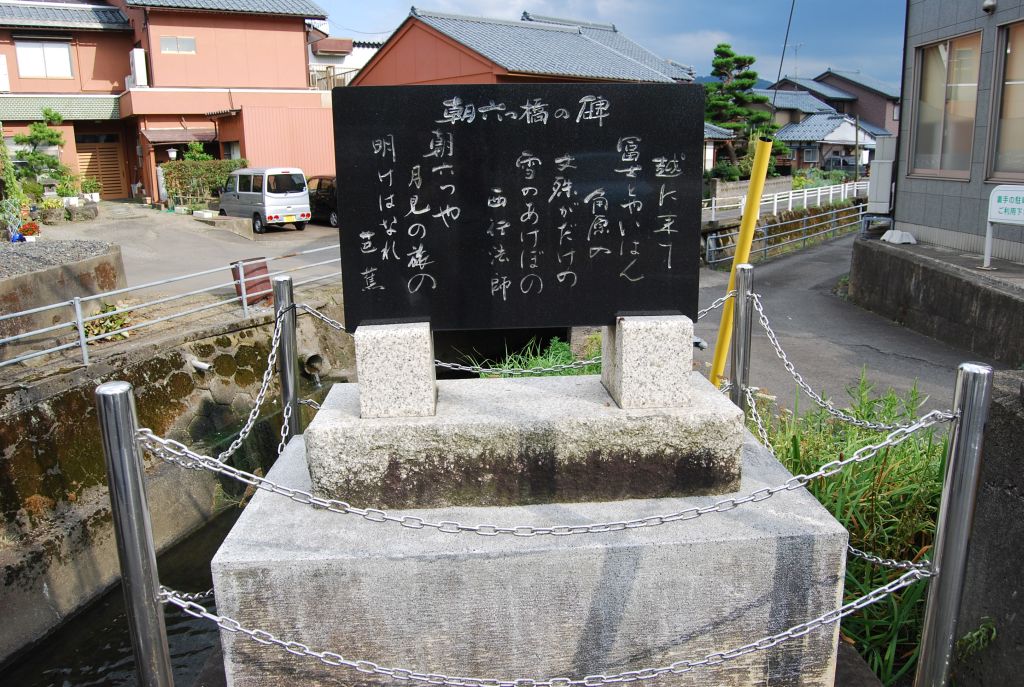 朝六つ橋の碑
越に来て
富士とやいはん
角原の
文殊がだけの
雪のあけぼの
西行法師
朝六つや
月見の旅の
明けはなれ
芭蕉
裏手の駐
ご利用下